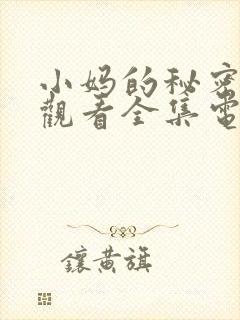 小妈的秘密
觀看全集電
鑲黄旗